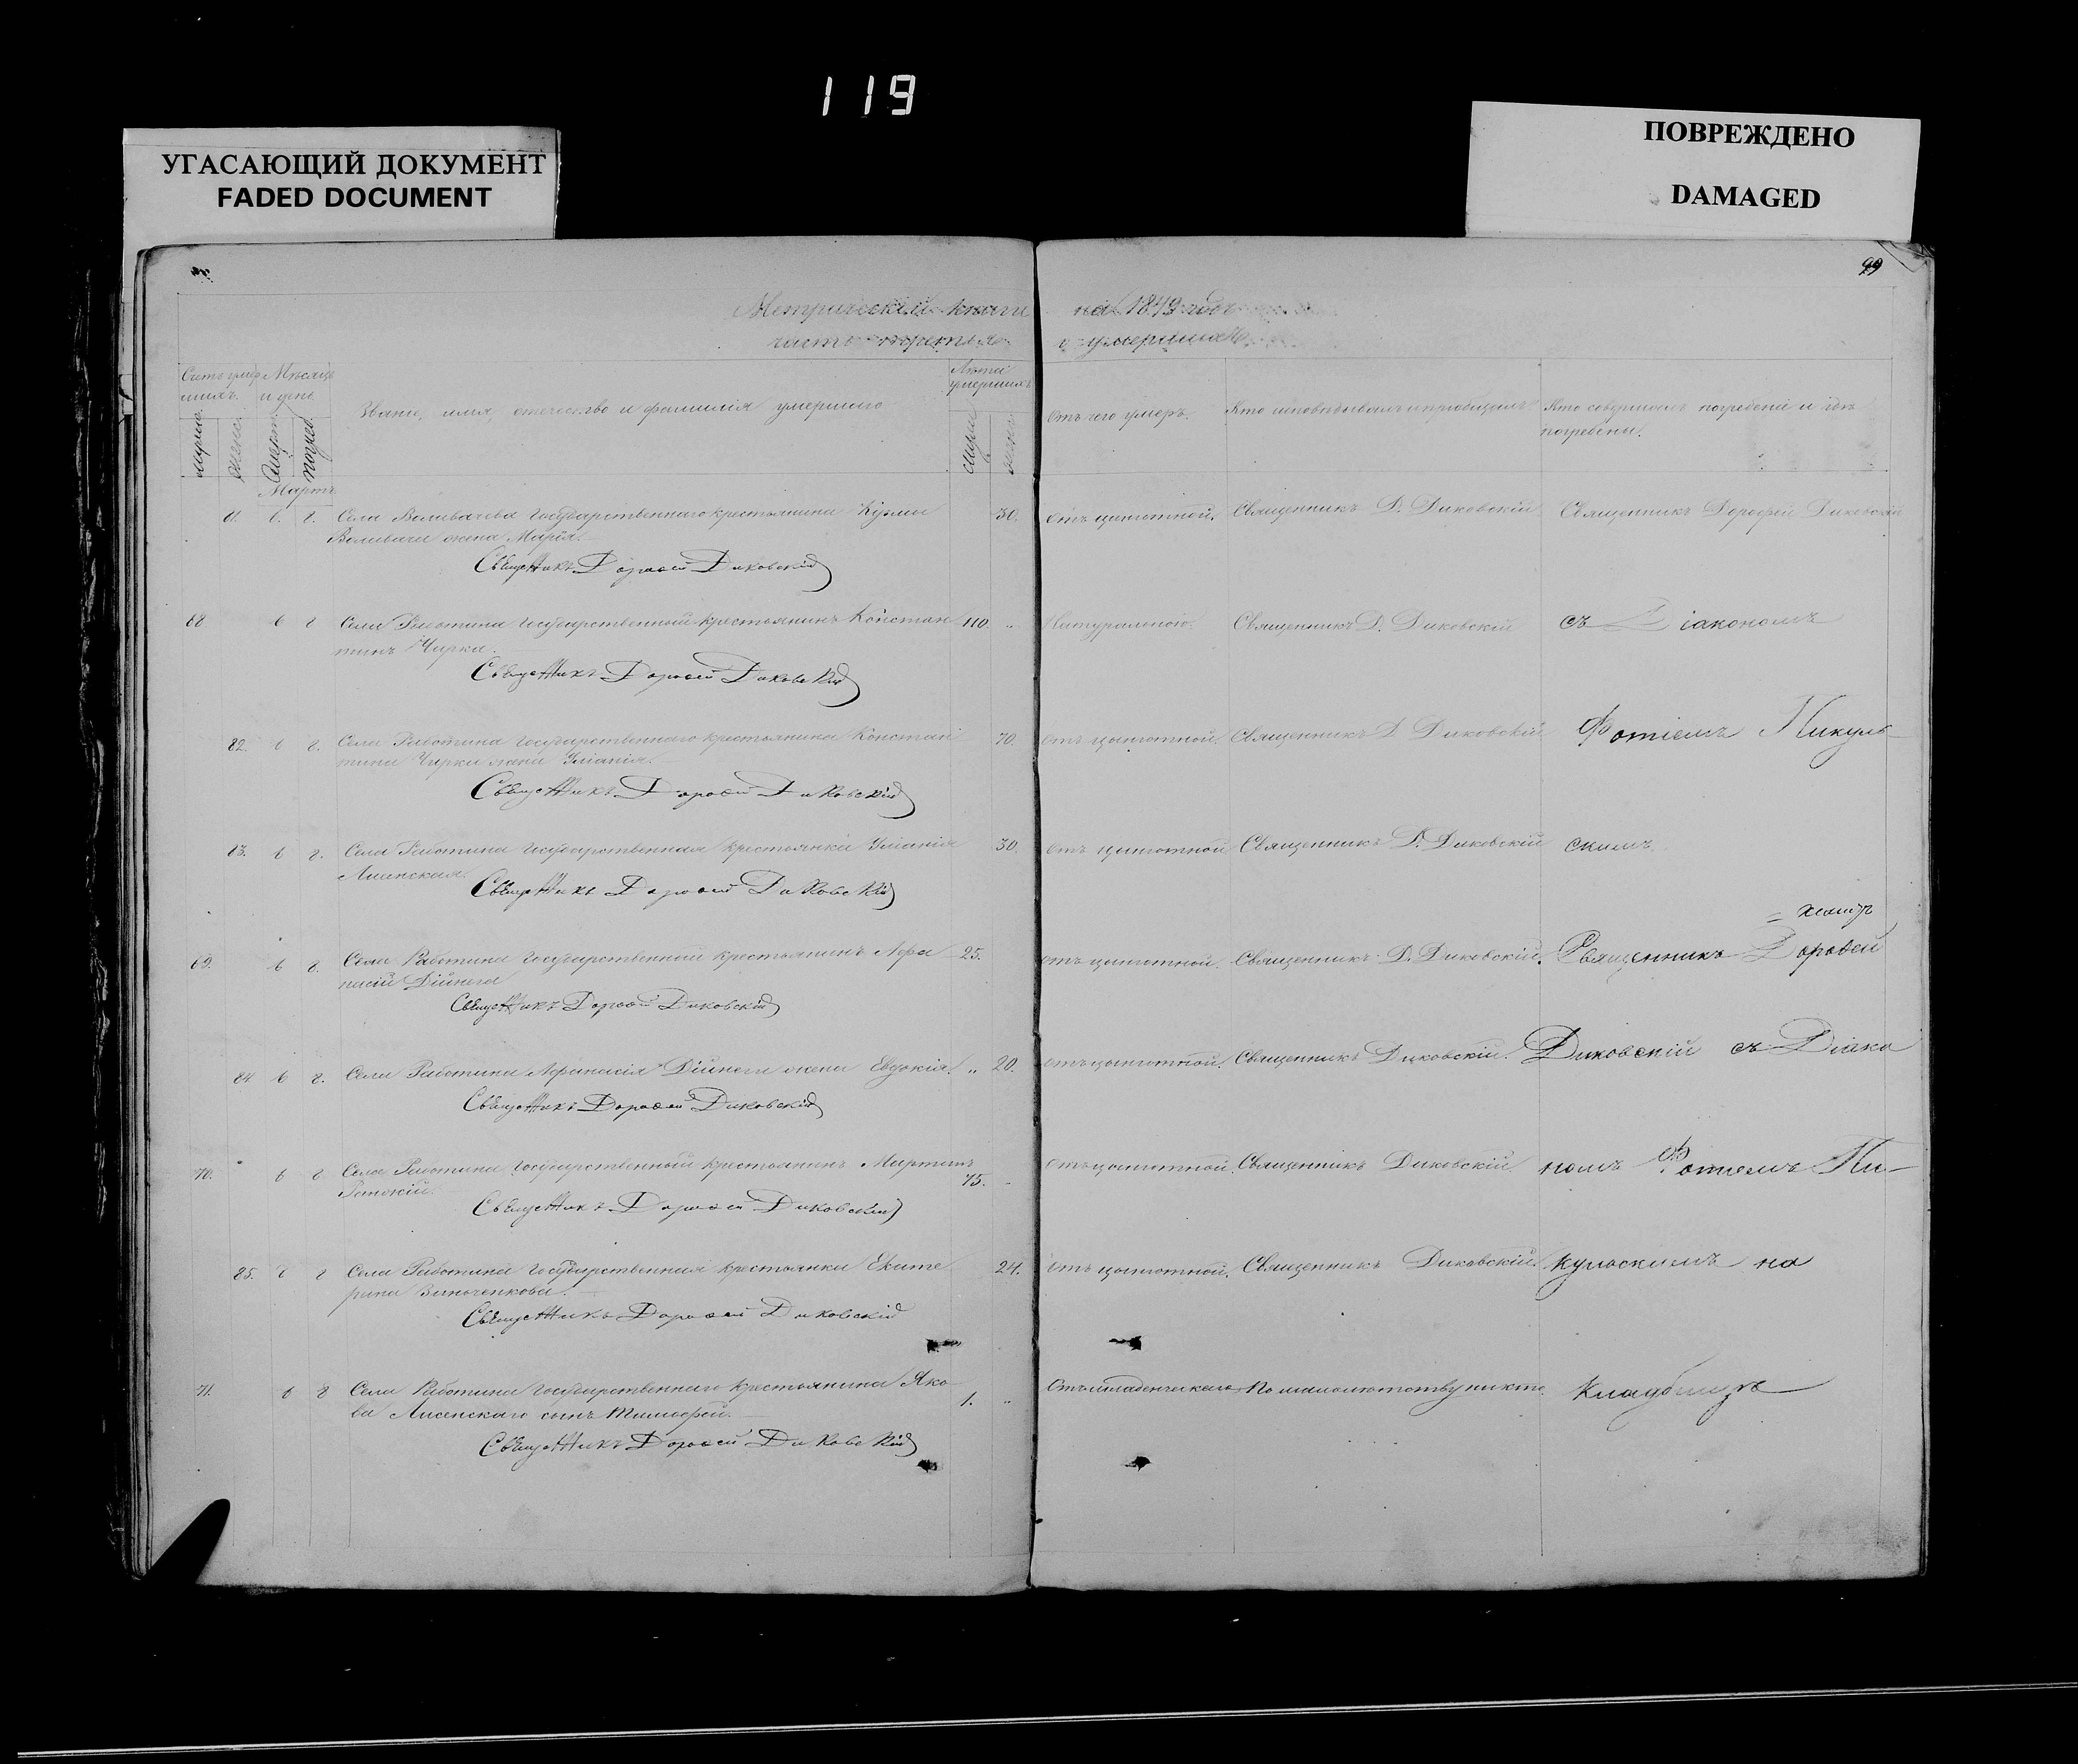 119
УГАСАЮЩИЙ ДОКУМЕНТ
FADED DOCUMENT
ПОВРЕЖДЕНО
DAMAGED
99
Метрической книги на 1849 годъ
часть третья о умершихъ
Счетъ умер
шихъ.
Мѣсяцъ
и день
Званіе, имя, отечество и фамилія умершаго
Лѣта
умершихъ
Отъ чего умеръ.
Кто исповѣдывалъ и пріобщалъ
Кто совершалъ погребеніе и гдѣ
погребены.
мужск.
женс.
Смерт.
погреб.
мужс
женс
Мартъ
81. 6. 8. Села Воливачева государственнаго крестьянина Кузьмы 30. отъ цынготной. Священникъ Д. Диковскій Священникъ Дорофей Диковскій
Воливача жена Марія.
Священникъ Дорофей Диковскій
68 6 8 Села Работина государственный крестьянинъ Констан 110. Натуральною. Священникъ Д. Диковскій съ Діакономъ
тинъ Чирка.
Священникъ Дорофей Диковскій
82. 6 8. Села Работина государственнаго крестьянина Констан 70. отъ цынготной. Священникъ Д Диковскій Фотіемъ Пикуль
тина Чирки жена Уліанія.
Священникъ Дорофей Диковскій
83. 6 8. Села Работина государственная крестьянка Уліанія 30. отъ цынготной Священникъ Д. Диковскій скимъ.
Лисенская.
Священникъ Дорофей Диковскій
69. 6 8. Села Работина государственный крестьянинъ Афа 25. отъ цынготной. Священникъ Д. Диковскій. Священникъ Дорофей
насій
Священникъ Дорофей Диковскій
84 6 8. Села Работина Афанасія жена Евдокія. „ 20. отъ цынготной. Священникъ Диковскій. Диковскій съ Діако
Священникъ Дорофей Диковскій
70. 6 8 Села Работина государственный крестьянинъ Мартинъ 75. отъ цынготной. Священникъ Диковскій номъ Фотіемъ Пи-
Священникъ Дорофей Диковскій
85. 6 8 Села Работина государственная крестьянка Екате 24. отъ цынготной. Священникъ Диковскій. кульскимъ на
рина Зинченкова.
Священникъ Дорофей Диковскій
71. 6 8 Села Работина государственнаго крестьянина Яко 1. „ Отъ младенческаго По малолѣтству никто. кладбищѣ
ва Лисенскаго сынъ Тимофей.
Священникъ Дорофей Диковскій